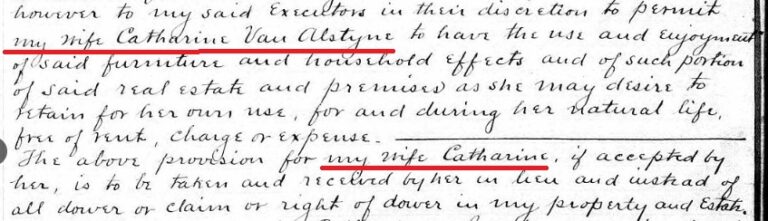 however to my said Executors in their discretion to permit
my wife Catharine Van Alstyne to have the use and enjoyment
of said furniture and household effects and of such portion
of said real estate and premises as she may desire to
retain for her own use, for and during her natural life,
free of rent, charge or expense.
The above provision for my wife Catharine, if accepted by
her, is to be taken and received by her in lieu and instead of
all dower or claim or right of dower in my property and Estate.